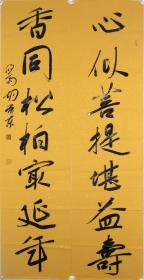 心似菩提堪益壽
香同松柏最延年